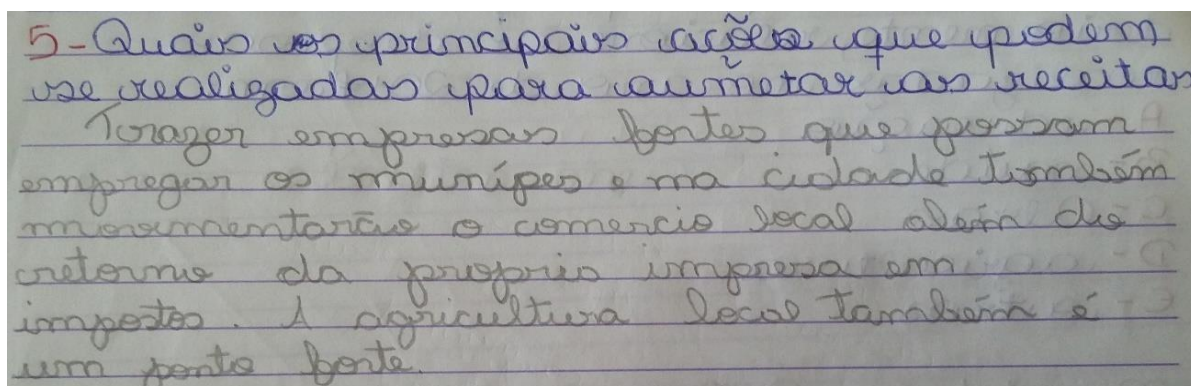 5- Quais as principais ações que podem
se realizadas para aumetar as receitas
Trazer empresas fortes que possam
empregar os munípes e na cidade também
movimentarão o comercio local além do
retorno da proprio impresa em
impostos. A agricultura local também é
um ponto forte.